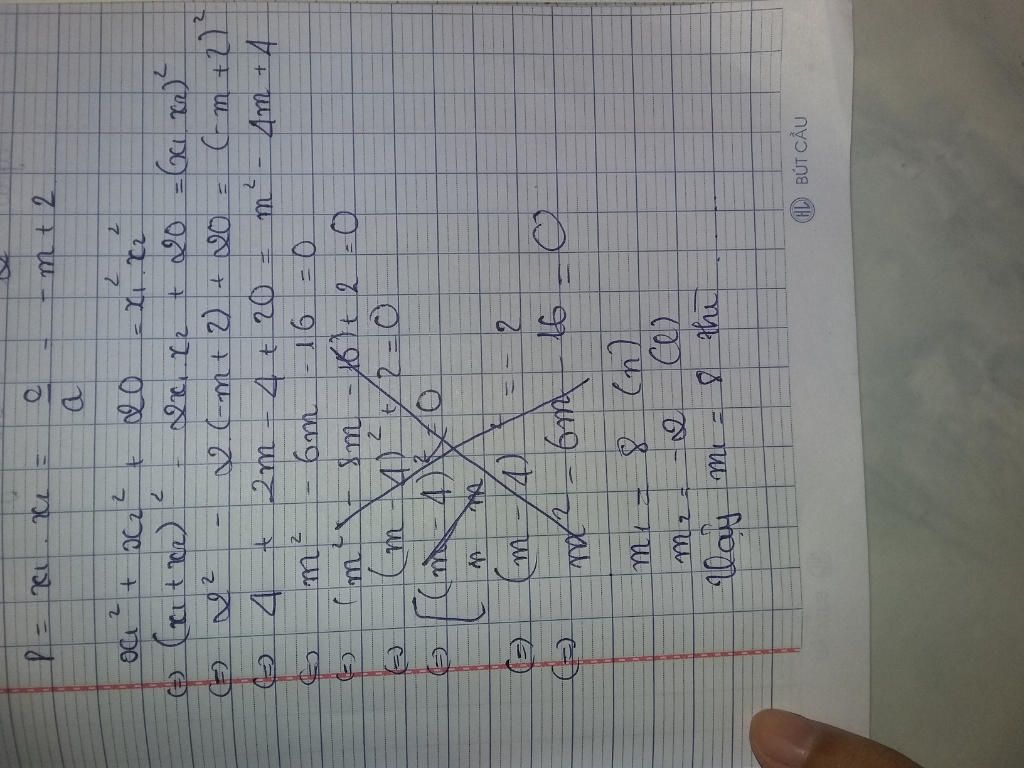 P = x₁ . x₂ = c/a = - m + 2
x₁² + x₂² + 20 = x₁² . x₂²
(=) (x₁ + x₂)² - 2x₁ . x₂ + 20 = (x₁ . x₂)²
(=) 2² - 2.(-m + 2) + 20 = (-m + 2)²
(=) 4 + 2m - 4 + 20 = m² - 4m + 4
(=) m² - 6m - 16 = 0
(=) (m² - 8m - 16) + 2 = 0
(=) (m - 4)² + 2 = 0
(=) [(m - 4)² 0
m m
(=) (m - 4)² = - 2
(=) m² - 6m - 16 = 0
m₁ = 8 (n)
m₂ = -2 (l)
Vậy m = 8 thì .......
BÚT CẦU